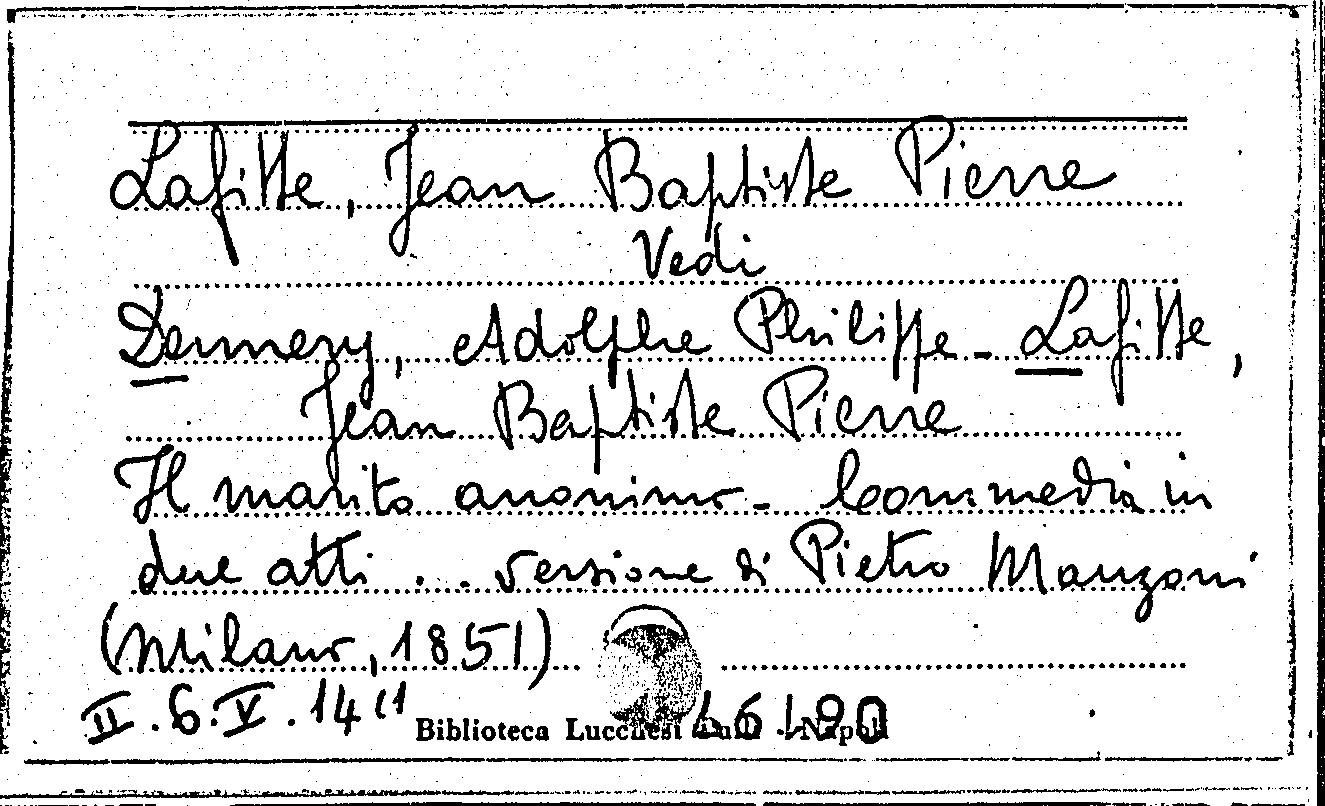 Lafitte, Jean Baptiste Pierre
Vedi
Dennery, Adolphe Philippe - Lafitte,
Jean Baptiste Pierre
Il marito anonimo - Commedia in
due atti ... versione di Pietro Manzoni
(Milano, 1851)
II.6.V.14(1
Biblioteca Lucchesi Palli - Napoli